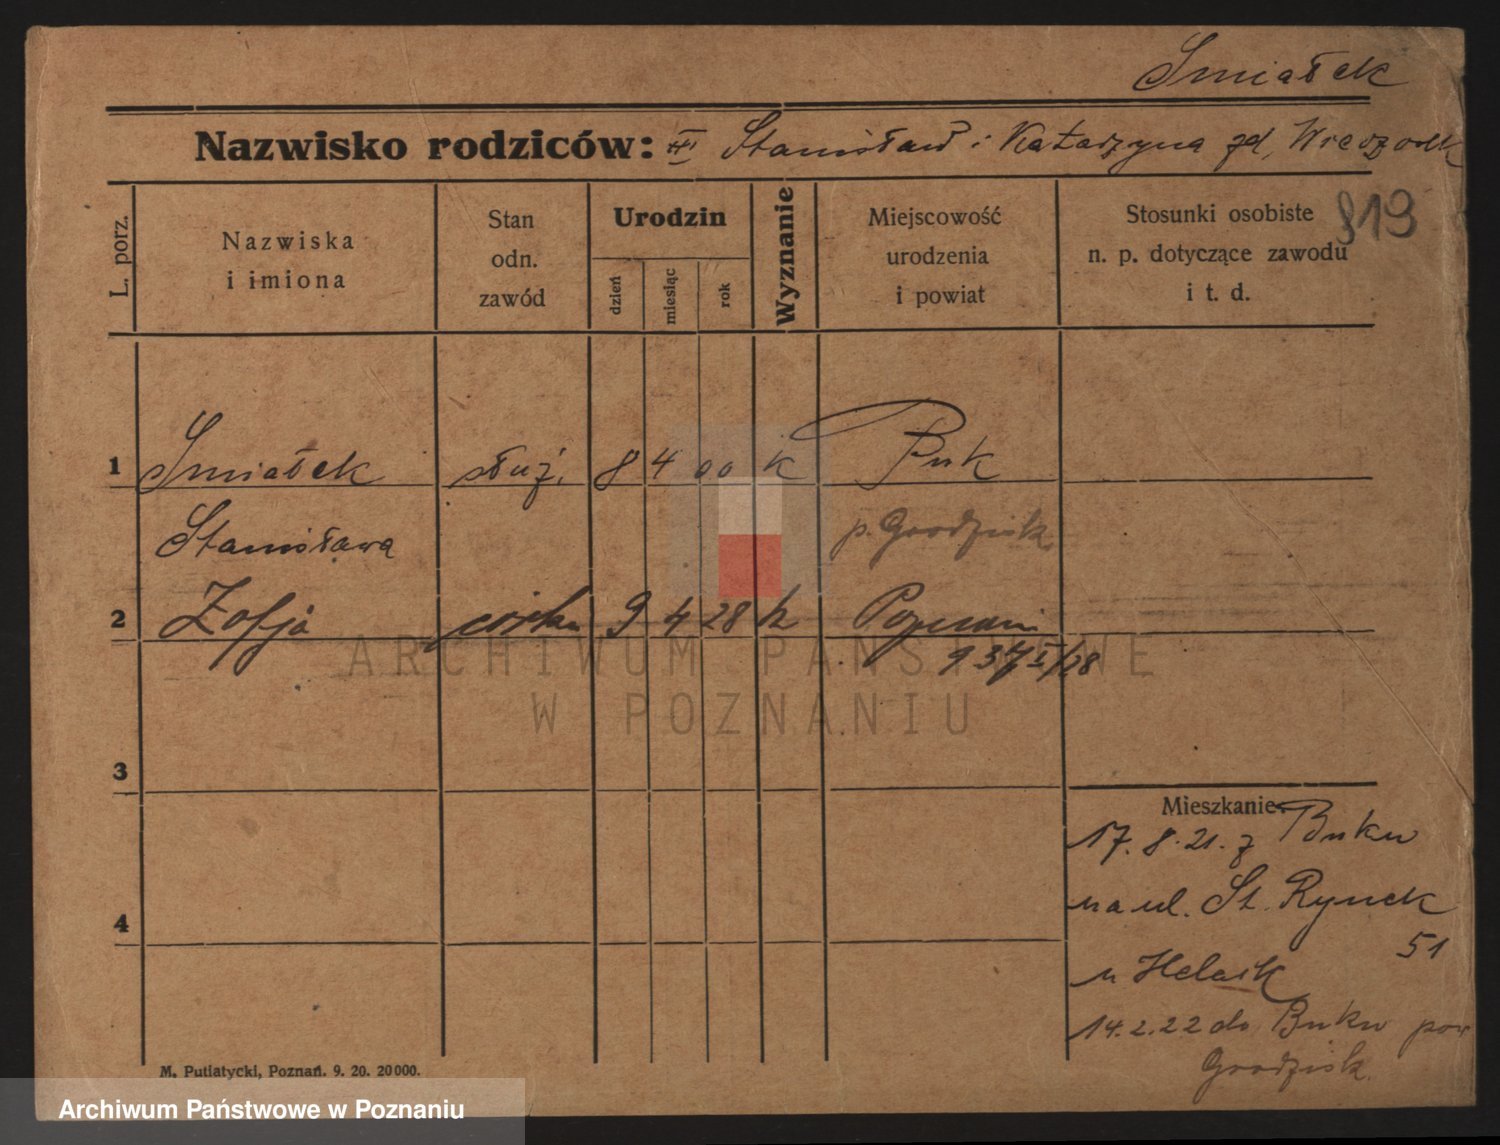 Smiałek
Nazwisko rodziców: Stanisław i Katarzyna zd. Wieczorek
L. porz.
Nazwiska
i imiona
Stan
odn.
zawód
Urodzin
dzień
miesiąc
rok
Wyznanie
Miejscowość
urodzenia
i powiat
Stosunki osobiste
n. p. dotyczące zawodu
i t. d.
819
1 Smiałek służ. 8 4 00 k Buk
Stanisława p. Grodzisk
2 Zofja córka 9 4 28 k Poznań
3
4
Mieszkanie:
17. 8. 21. z Buku
na ul. St. Rynek
51
u Helak
14. 2. 22 do Buku pow
Grodzisk
M. Putiatycki, Poznań. 9. 20. 20 000.
ARCHIWUM PAŃSTWOWE
W POZNANIU
Archiwum Państwowe w Poznaniu